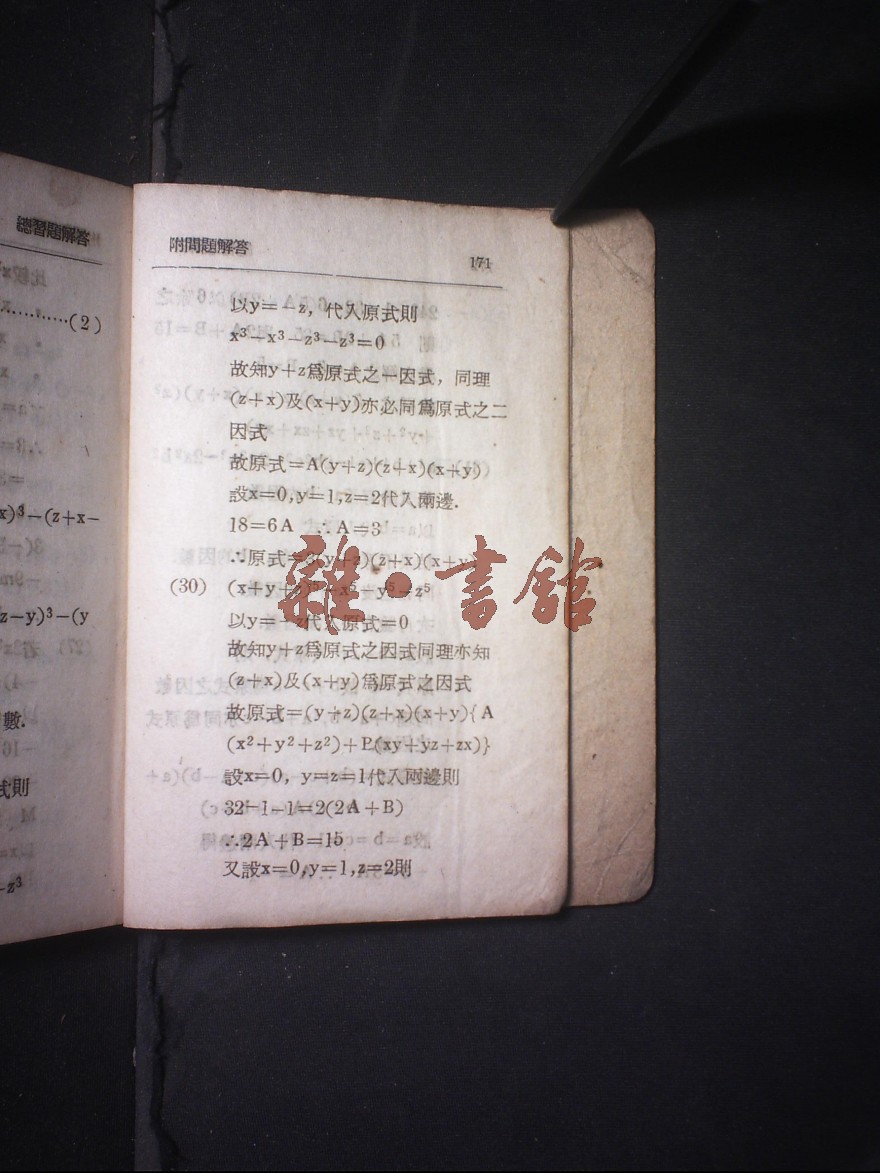 總習題解答
………(2)
x)³−(z+x−
z−y)³−(y
數.
式則
−z³
附問題解答
171
以y=−z, 代入原式則
x³−x³−z³−z³=0
故知y+z爲原式之一因式, 同理
(z+x)及(x+y)亦必同爲原式之二
因式
故原式=A(y+z)(z+x)(x+y)
設x=0,y=1,z=2代入兩邊.
18=6A ∴A=3
∴原式=3(y+z)(z+x)(x+y)
(30) (x+y+z)⁵−x⁵−y⁵−z⁵
以y=−z代入原式=0
故知y+z爲原式之因式同理亦知
(z+x)及(x+y)爲原式之因式
故原式=(y+z)(z+x)(x+y){A
(x²+y²+z²)+B(xy+yz+zx)}
設x=0, y=z=1代入兩邊則
32−1−1=2(2A+B)
∴2A+B=15
又設x=0,y=1,z=2則
雜·書館